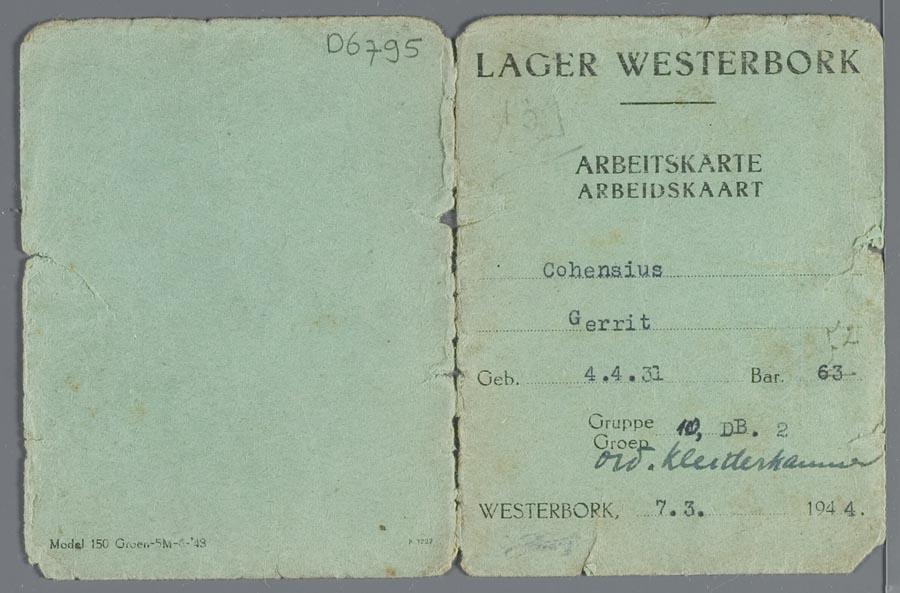 D6795
Model 150 Groen-5M-6-'43
K 1227
LAGER WESTERBORK
ARBEITSKARTE
ARBEIDSKAART
Cohensius
Gerrit
Geb. 4.4.31 Bar. 63
72
Gruppe
Groep 10, DB. 2
Ord. Kleiderkammer
WESTERBORK, 7.3. 1944.